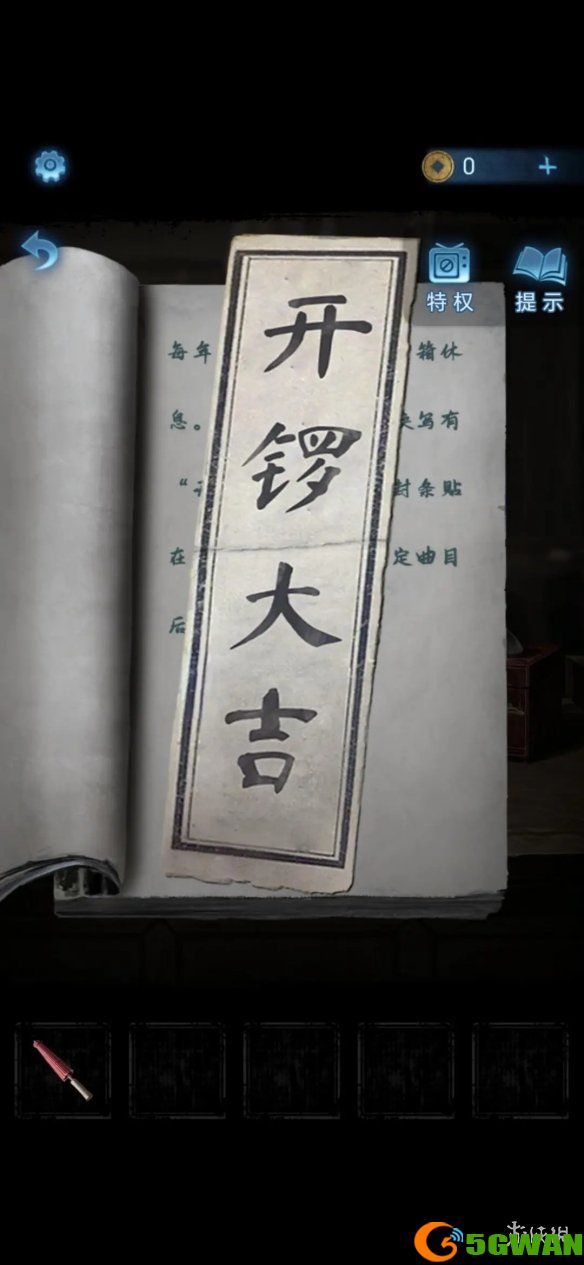 0
特权
提示
开锣大吉
每年
箱休
息。
写有
封条贴
在
定曲目
后
5GWAN